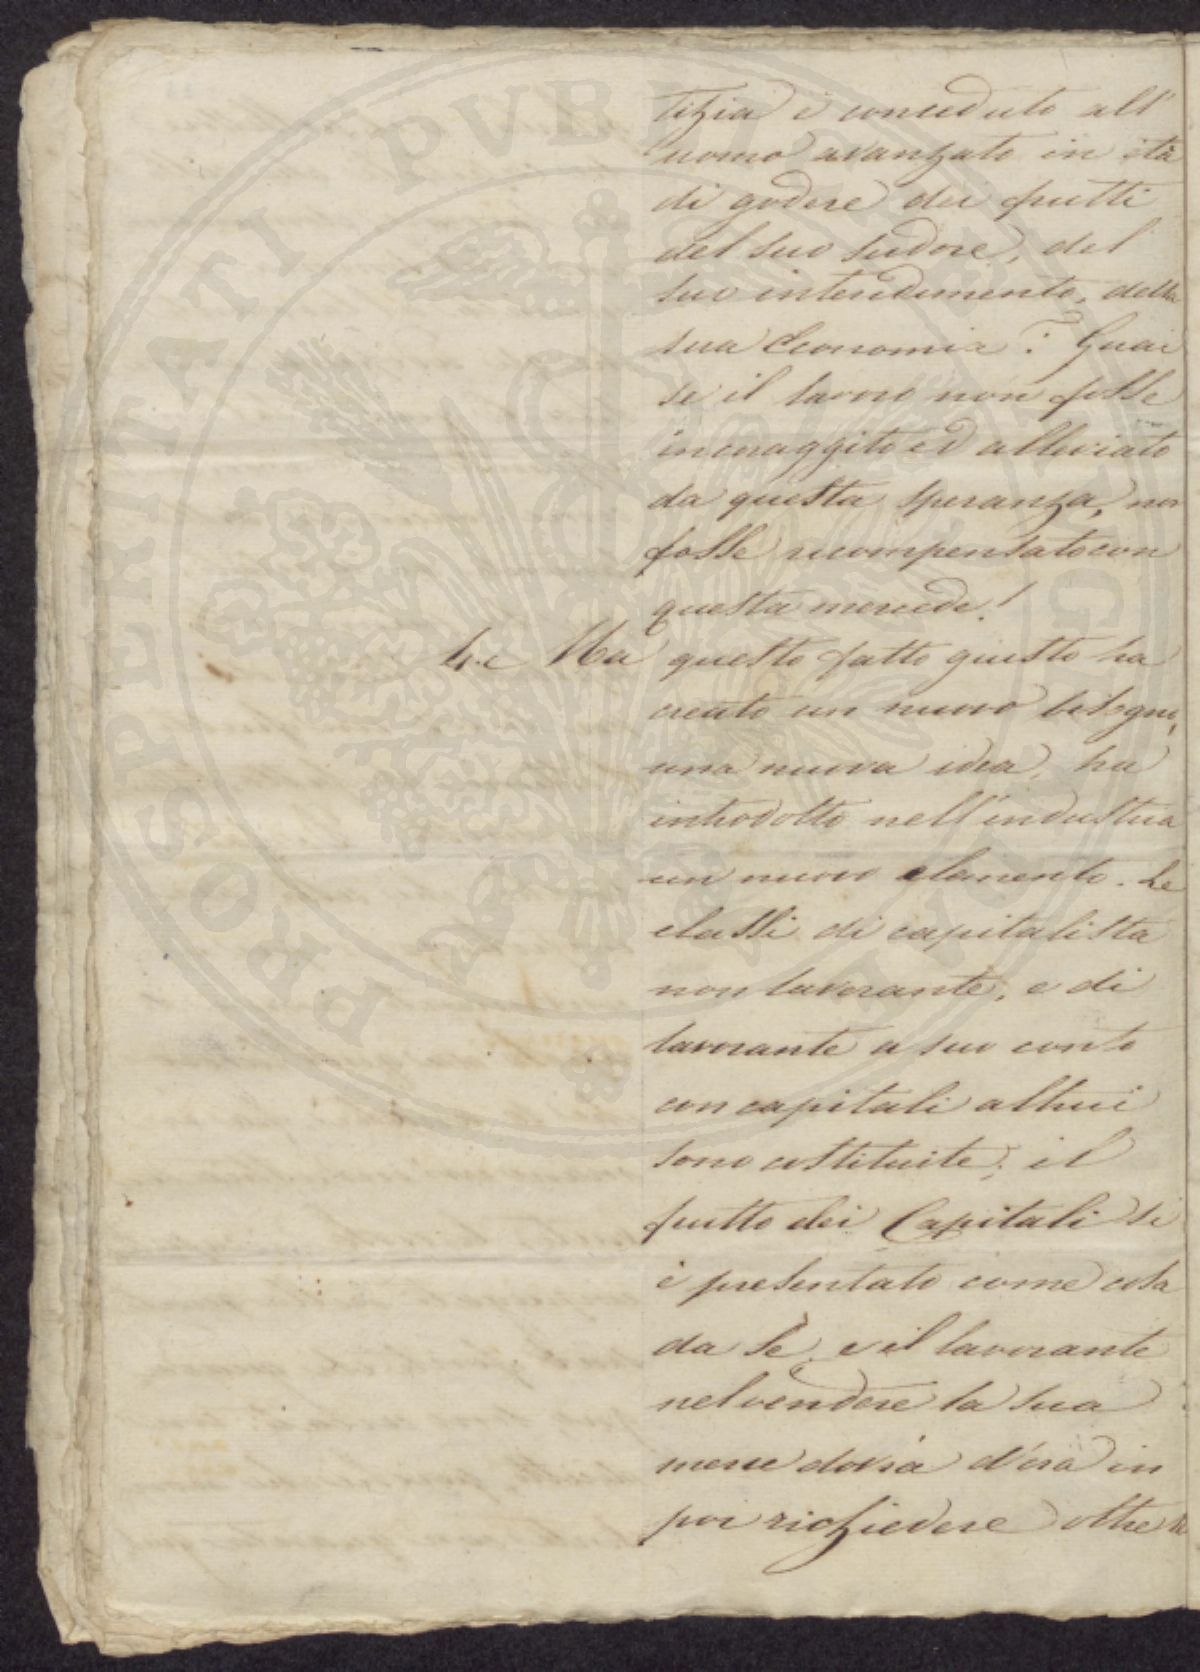 tizia è conceduto all'
uomo avanzato in età
di godere dei frutti
del suo sudore, del
suo intendimento, della
sua Economia? Guai
se il lavoro non fosse
incoraggito ed alleviato
da questa speranza, non
fosse ricompensato con
questa mercede!
4.c Ma questo fatto giusto ha
creato un nuovo bisogno,
una nuova idea, ha
introdotto nell'industria
un nuovo elemento. Le
classi di capitalista
non lavorante, e di
lavorante a suo conto
con capitali altrui
sono costituite; il
frutto dei Capitali si
è presentato come cosa
da sè, e il lavorante
nel vendere la sua
merce dovrà d'ora in
poi richiedere oltre
PROSPERITATI PVBLICAE